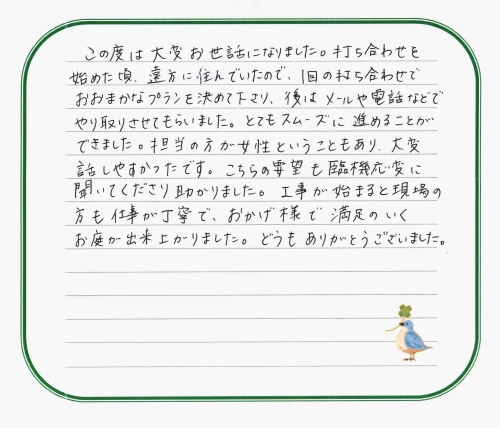 この度は大変お世話になりました。打ち合わせを
始めた頃、遠方に住んでいたので、1回の打ち合わせで
おおまかなプランを決めて下さり、後はメールや電話などで
やり取りさせてもらいました。とてもスムーズに進めることが
できました。担当の方が女性ということもあり、大変
話しやすかったです。こちらの要望も臨機応変に
聞いてくださり助かりました。工事が始まると現場の
方も仕事が丁寧で、おかげ様で満足のいく
お庭が出来上がりました。どうもありがとうございました。